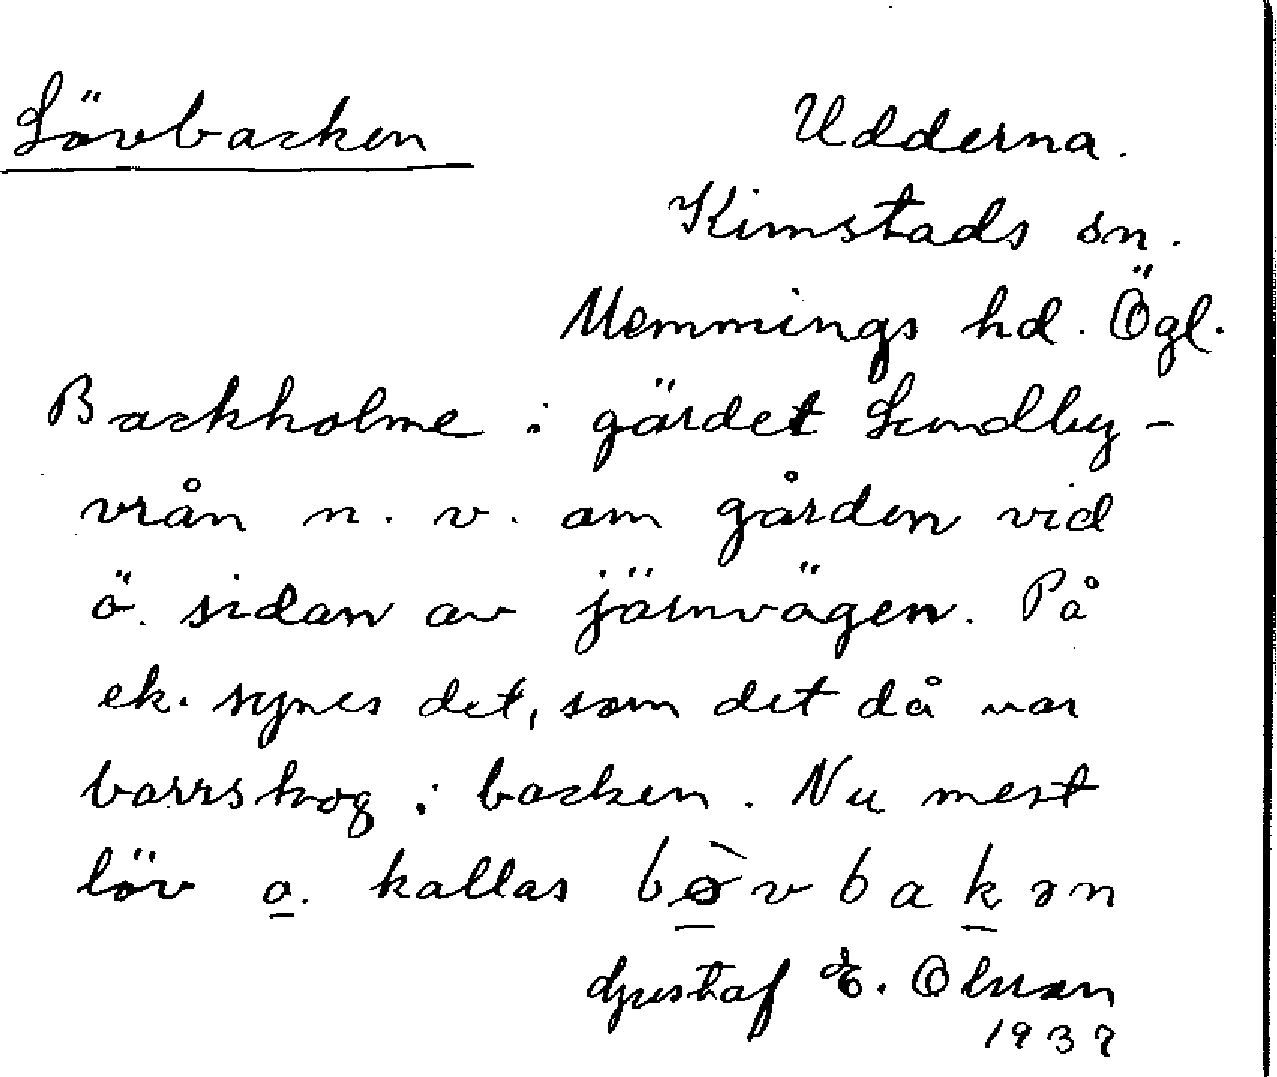 Lövbacken
Udderna.
Kimstads sn.
Memmings hd. Ögl.
Backholme i gärdet Lundby-
vrån n. v. om gården vid
ö. sidan av järnvägen. På
ek. synes det, som det då var
barrskog i backen. Nu mest
löv o. kallas
Gustaf E. Olsson
1937